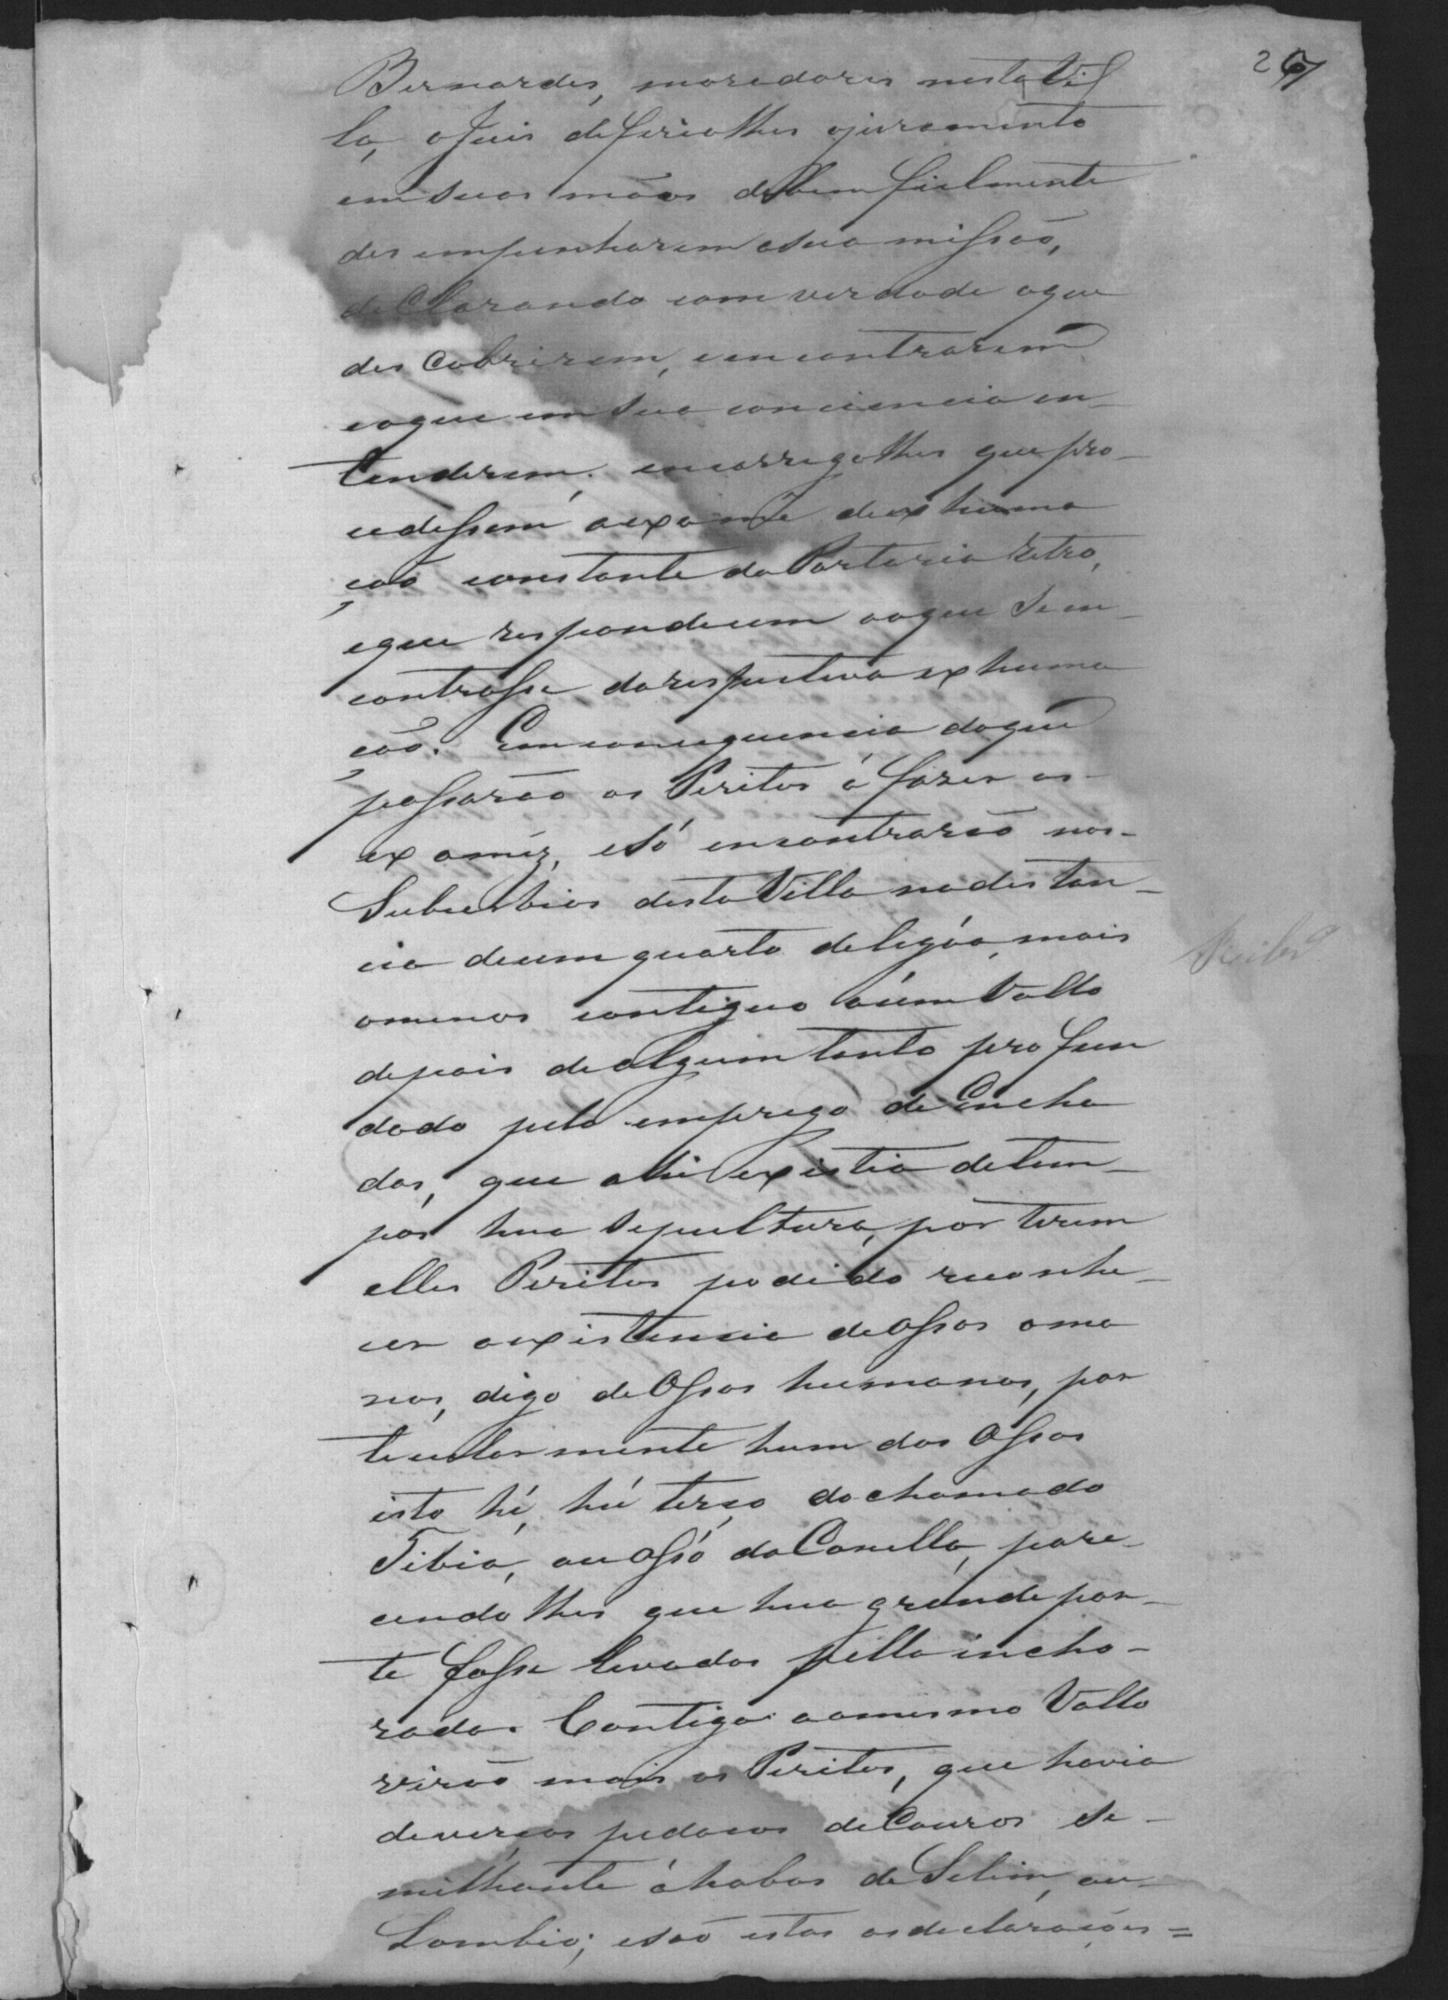 26
Bernardes, moradores nesta Vil
la, o Juis deferiolhes ojuramento
em suas mãos debem fielmente
desempenharem asua missaõ,
declarando com verdade oque
descobrirem, e encontrarem
eoque em sua conciencia en-
tenderem, encarregolhes que pro-
cedessem aexame deexhuma
caõ constante da Portaria retro,
eque respondecem aoque seen-
contrasse darespectiva exhuma
çaõ. Em consequencia doque
passaraõ os Peritos á fazer os-
exames, esó encontraraõ nos-
Suburbios desta Villa nadistan-
cia deum quarto delegóa, mais
omenos contiguo áum Vallo
depois dealgum tanto profun
dado pelo emprego de Encha
das, que alli existio detem-
pos hua sepultura, por terem
elles Peritos podido reconhe-
cer aexistencia deossos oma
nos, digo de Ossos humanos, par
ticularmente hum dos Ossos
isto hé, hú terço dochamado
Tibia, ou ossó da Canella, pare-
cendolhes que hua grande par-
te fosse levados pella incho-
rada. Contigo aomesmo Vallo
viraõ mais os Peritos, que havia
deverços pedaços de Couros se-
milhante áhabas de Selim, ou
Lombio; esaõ estas asdeclaraçoes=